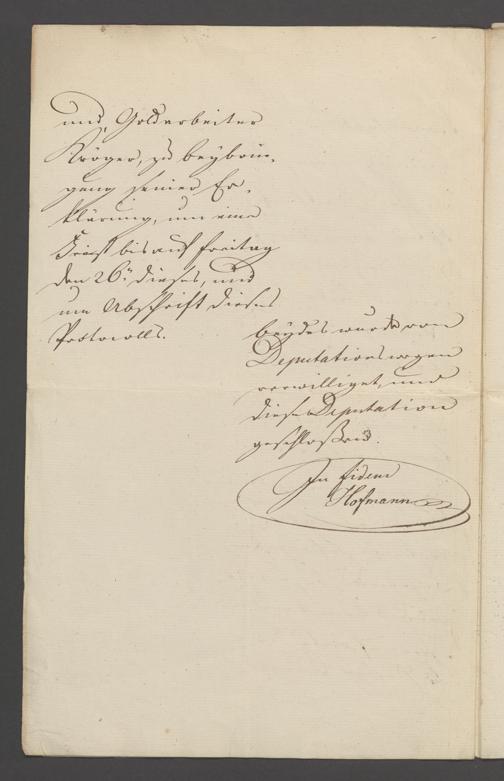 und, Goldarbeiter
Kröger, zu beybrin¬
gung seiner Er¬
klärung, um eine
Frist bis auf freitag
den 26.n dieses, und
um Abschrift dieses
Protocolls.
beydes wurde von
Deputationswegen
verwilliget, und
diese Deputation
geschloßen.
In fidem
Hofmann